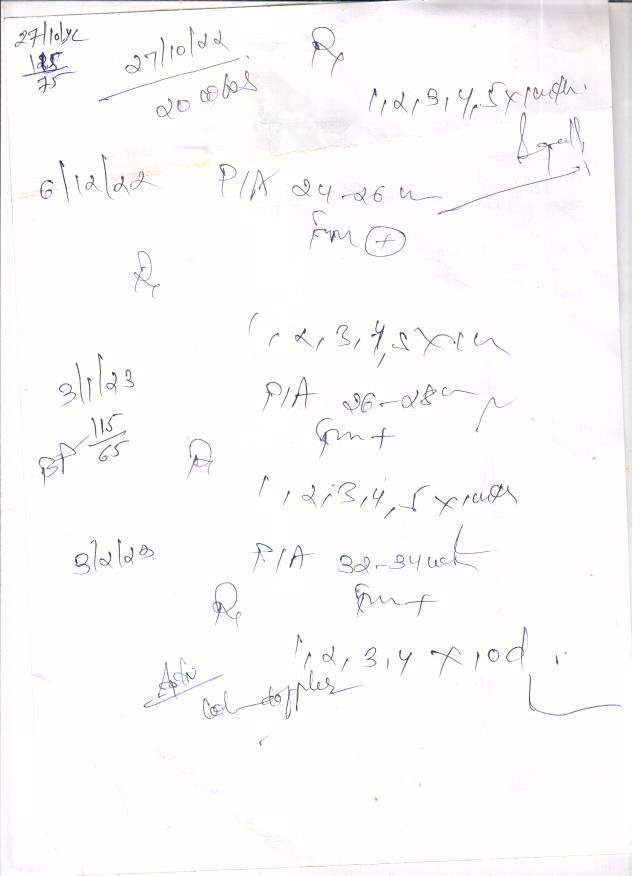 27/10/22
125/75
27/10/22
20
Rx
1, 2, 3, 4, 5 x
6/12/22 P/A 24-26 w
Fm +
Rx
1, 2, 3, 4, 5 x
3/1/23 P/A 26-28 w
BP 115/65 Fm +
Rx
1, 2, 3, 4, 5 x
3/2/23 P/A 32-34 wk
Fm +
Rx
1, 2, 3, 4 x 10d
Col doppler